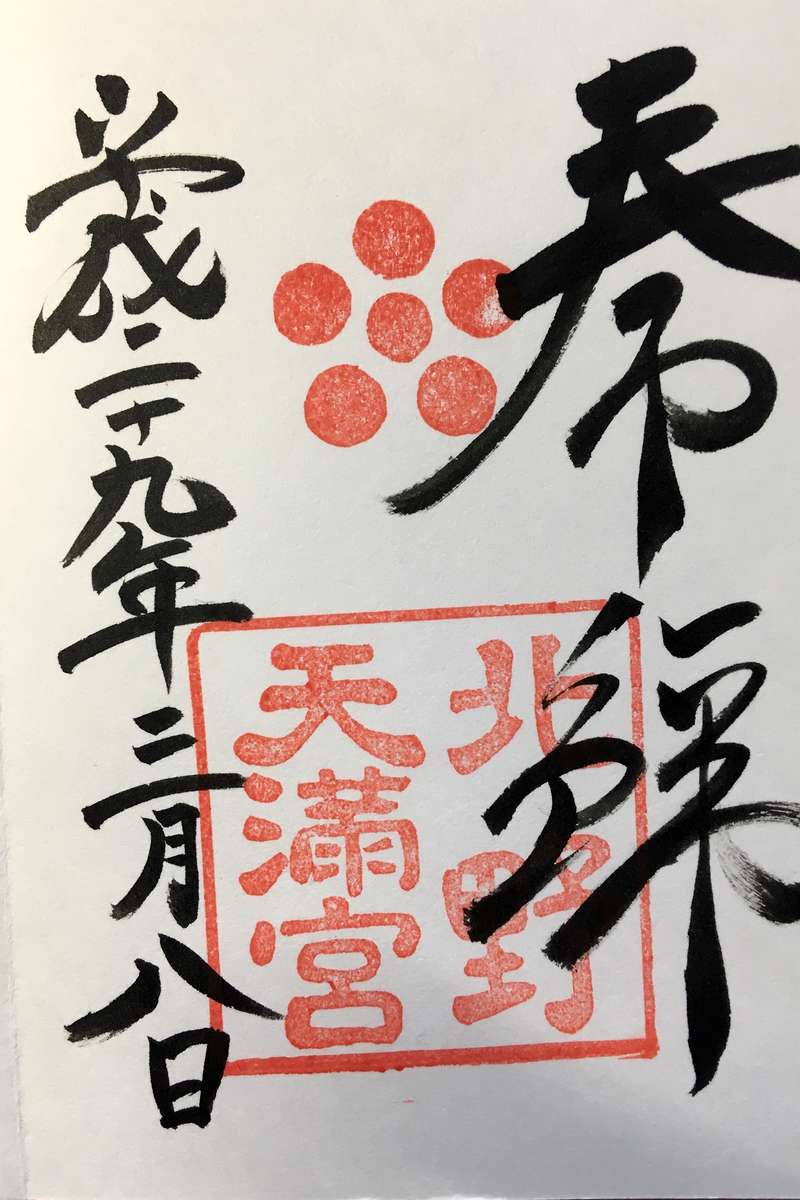 奉拝
北野
天満宮
平成二十九年三月八日